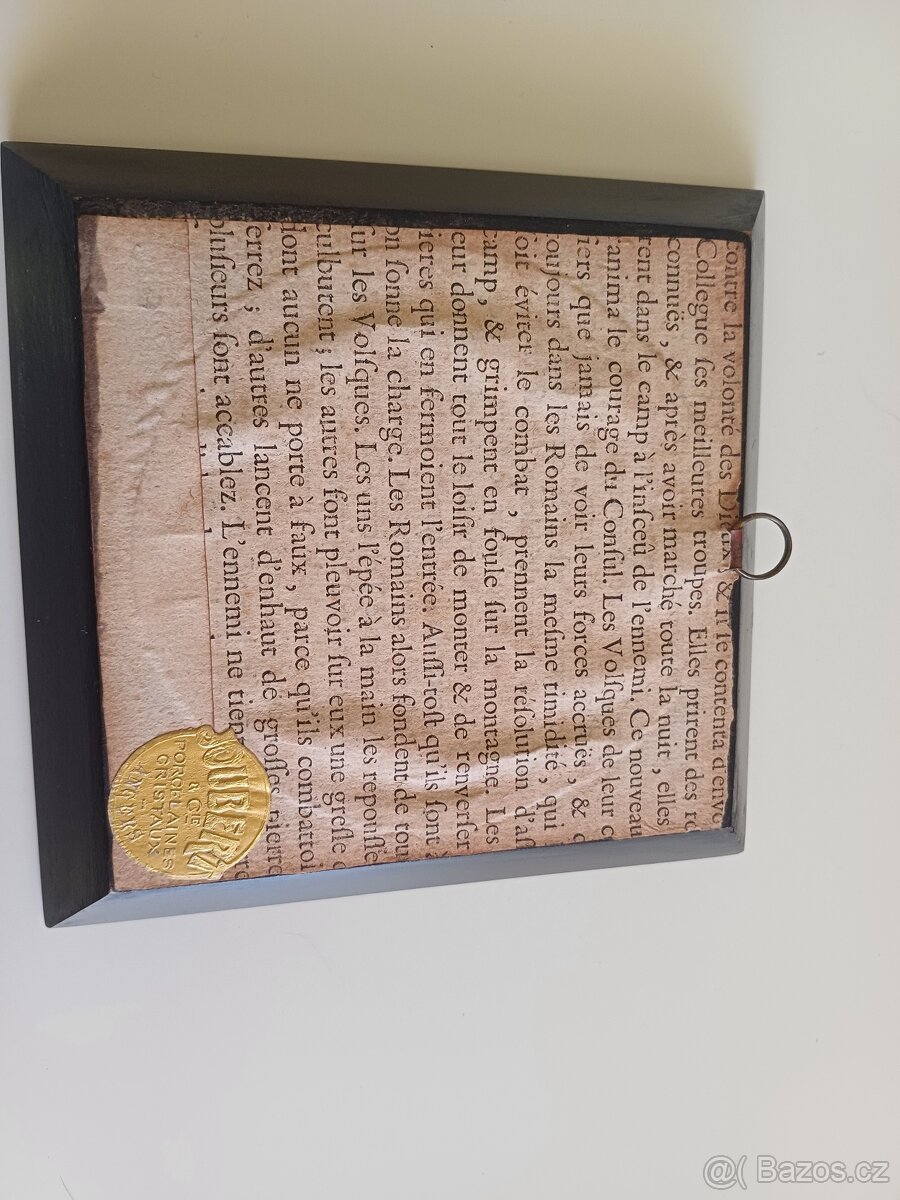 contre la volonté des Dieux & ſe contenta d'envo
Collegue ſes meilleures troupes. Elles prirent des ro
connuës, & après avoir marché toute la nuit, elles
rent dans le camp à l'inſceû de l'ennemi. Ce nouveau
anima le courage du Conſul. Les Volſques de leur c
iers que jamais de voir leurs forces accruës, & c
oujours dans les Romains la meſme timidité, qui
oit éviter le combat, prennent la réſolution d'aſ
camp, & grimpent en foule ſur la montagne. Les
eur donnent tout le loiſir de monter & de renverſer
ieres qui en fermoient l'entrée. Auſſi-toſt qu'ils ſont à
on ſonne la charge. Les Romains alors fondent de tou
ſur les Volſques. Les uns l'épée à la main les repouſſe
culbutent; les autres font pleuvoir ſur eux une greſle
dont aucun ne porte à faux, parce qu'ils combattoi
errez; d'autres lancent d'enhaut de groſſes pierre
pluſieurs ſont accablez. L'ennemi ne tien
& CIE
PORCELAINES
CRISTAUX
@( Bazos.cz